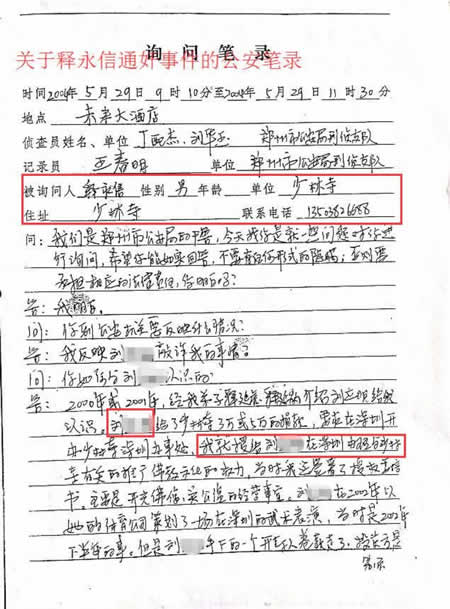 询问笔录
关于释永信通奸事件的公安笔录
时间2004年5月29日9时10分至2004年5月29日11时30分
地点 未来大酒店
侦查员姓名、单位 丁 杰、刘 郑州市公安局刑侦支队
记录员 王春明 单位 郑州市公安局刑侦支队
被询问人 释永信 性别 男 年龄 单位 少林寺
住址 少林寺 联系电话
问：我们是郑州市公安局的干警，今天我们是就一些问题对你进
行询问，希望你能如实回答，不要有任何形式的隐瞒，否则要
承担相应的法律责任，你明白吗？
答：我明白。
问：你到公安机关要反映什么情况？
答：我反映刘 敲诈我的事情？
问：你如何与刘 认识的？
答：2000年或2001年，经我弟子释延 介绍刘 给我
认识。刘 给了少林寺3万或5万的捐款，要求在深圳开
办少林寺深圳办事处，我就授给刘 在深圳
的权力，当时我还签署了授权委托
书。主要是开光佛像、 的经营事宜。刘 在2002年以
她的体育公司策划了一场在深圳的武术表演，当时是2002年
下半年的事。但是刘 手下的一个 卷款走了，
第1页